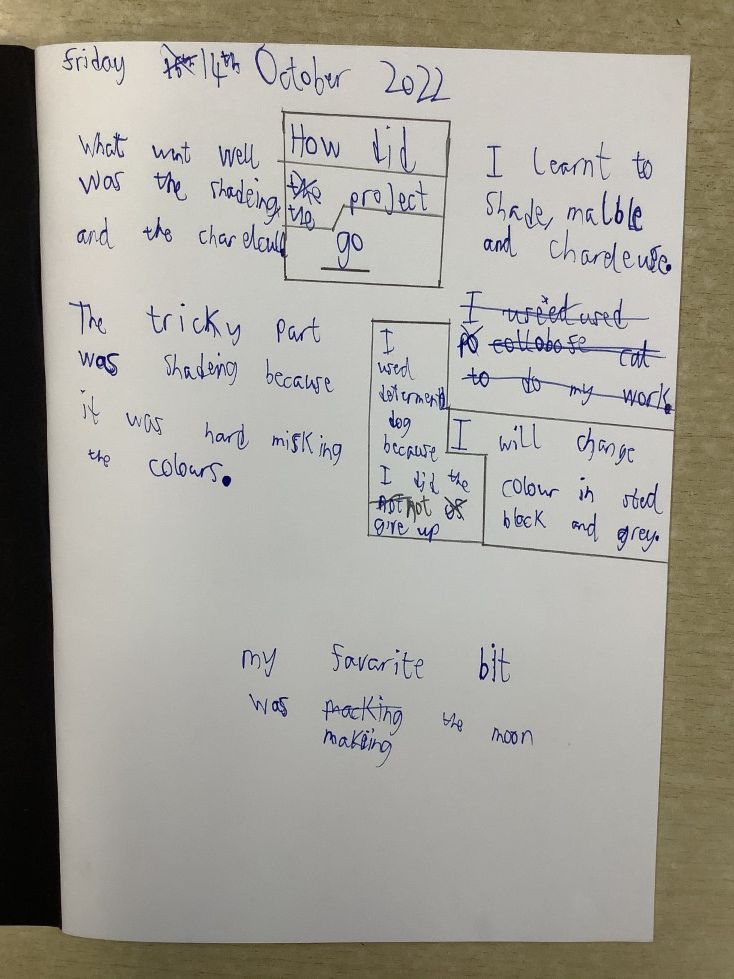 friday 14th October 2022
How did
the
the project
go
What wnt well
was the shadeing
and the
I learnt to
shade, malble
and
The tricky part
was shadeing because
it was hard misking
the colours.
I
used
determend
dog
because
I did the
not not
give up
I used
collobose cat
to do my work.
I will change
colour in sted
block and grey.
my favarite bit
was macking the moon
makeing